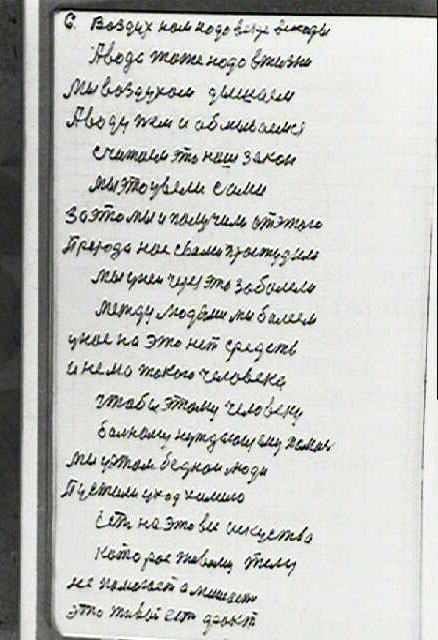 6. Воздух нам надо везде всюды
А вода тоже надо в жизни
Мы воздухом дышаем
А воду пем и обмываемся
Считаем это наш закон
Мы это увели сами
За это мы и получили от этого
Природа нас с вами простудила
Мы у ней через это заболели
Между людьми мы болеем
у нас на это нет средств
и нема токого человека
чтобы этому человеку
болному нуждающему
Мы устали бедное люди
Пустили у ход химию
Есть на это все искуства
Которое живому телу
не помогает а мешает
это живой есть